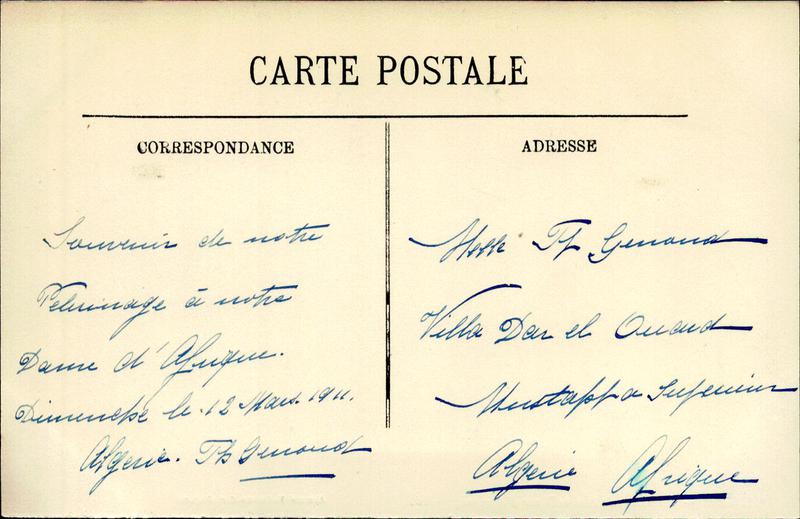 CARTE POSTALE
CORRESPONDANCE
Souvenir de notre
Pelerinage à notre
Dame d'Afrique.
Dimenche le. 12 Mars. 1911.
Algerie. Th Genoud
ADRESSE
Melle Th Genoud
Villa Dar el Ouard
Mustapha Superieur
Algerie Afrique